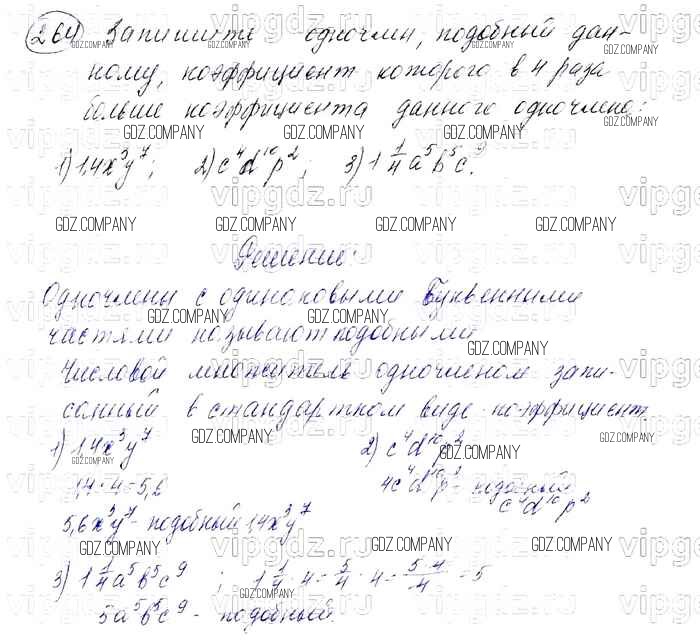 264 Запишите одночлен, подобный дан-
ному, коэффициент которого в 4 раза
больше коэффициента данного одночлена:
1) 1,4x³y⁷; 2) c⁴d¹⁰p²; 3) 1 1/4 a⁵b⁵c⁹.
Решение:
Одночлены с одинаковыми буквенными
частями называют подобными
Числовой множитель одночленом запи-
санный в стандартном виде - коэффициент
1) 1,4x³y⁷ 2) c⁴d¹⁰p²
1,4·4=5,6 4c⁴d¹⁰p² - подобный
c⁴d¹⁰p²
5,6x³y⁷ - подобный 1,4x³y⁷
3) 1 1/4 a⁵b⁵c⁹ ; 1 1/4 · 4 = 5/4 · 4 = 5·4/4 = 5
5a⁵b⁵c⁹ - подобный.
GDZ.COMPANY
vipgdz.ru